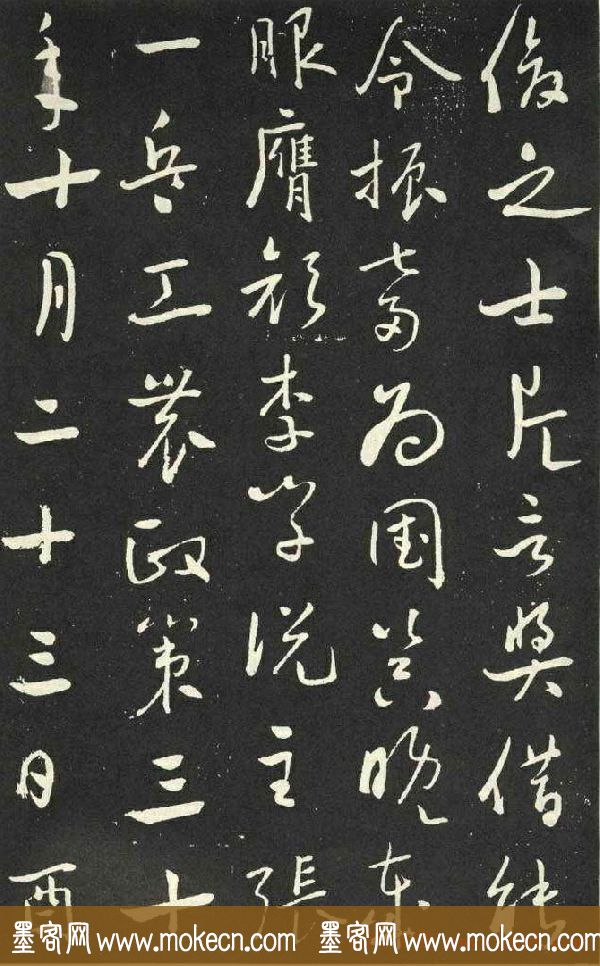 俊之士片言獎借能
令振奮為國其晚
服膺顏李學說主張
一兵工農政策三十
年十月二十三日酉
墨客网 www.mokecn.com 墨客网 www.mokecn.com